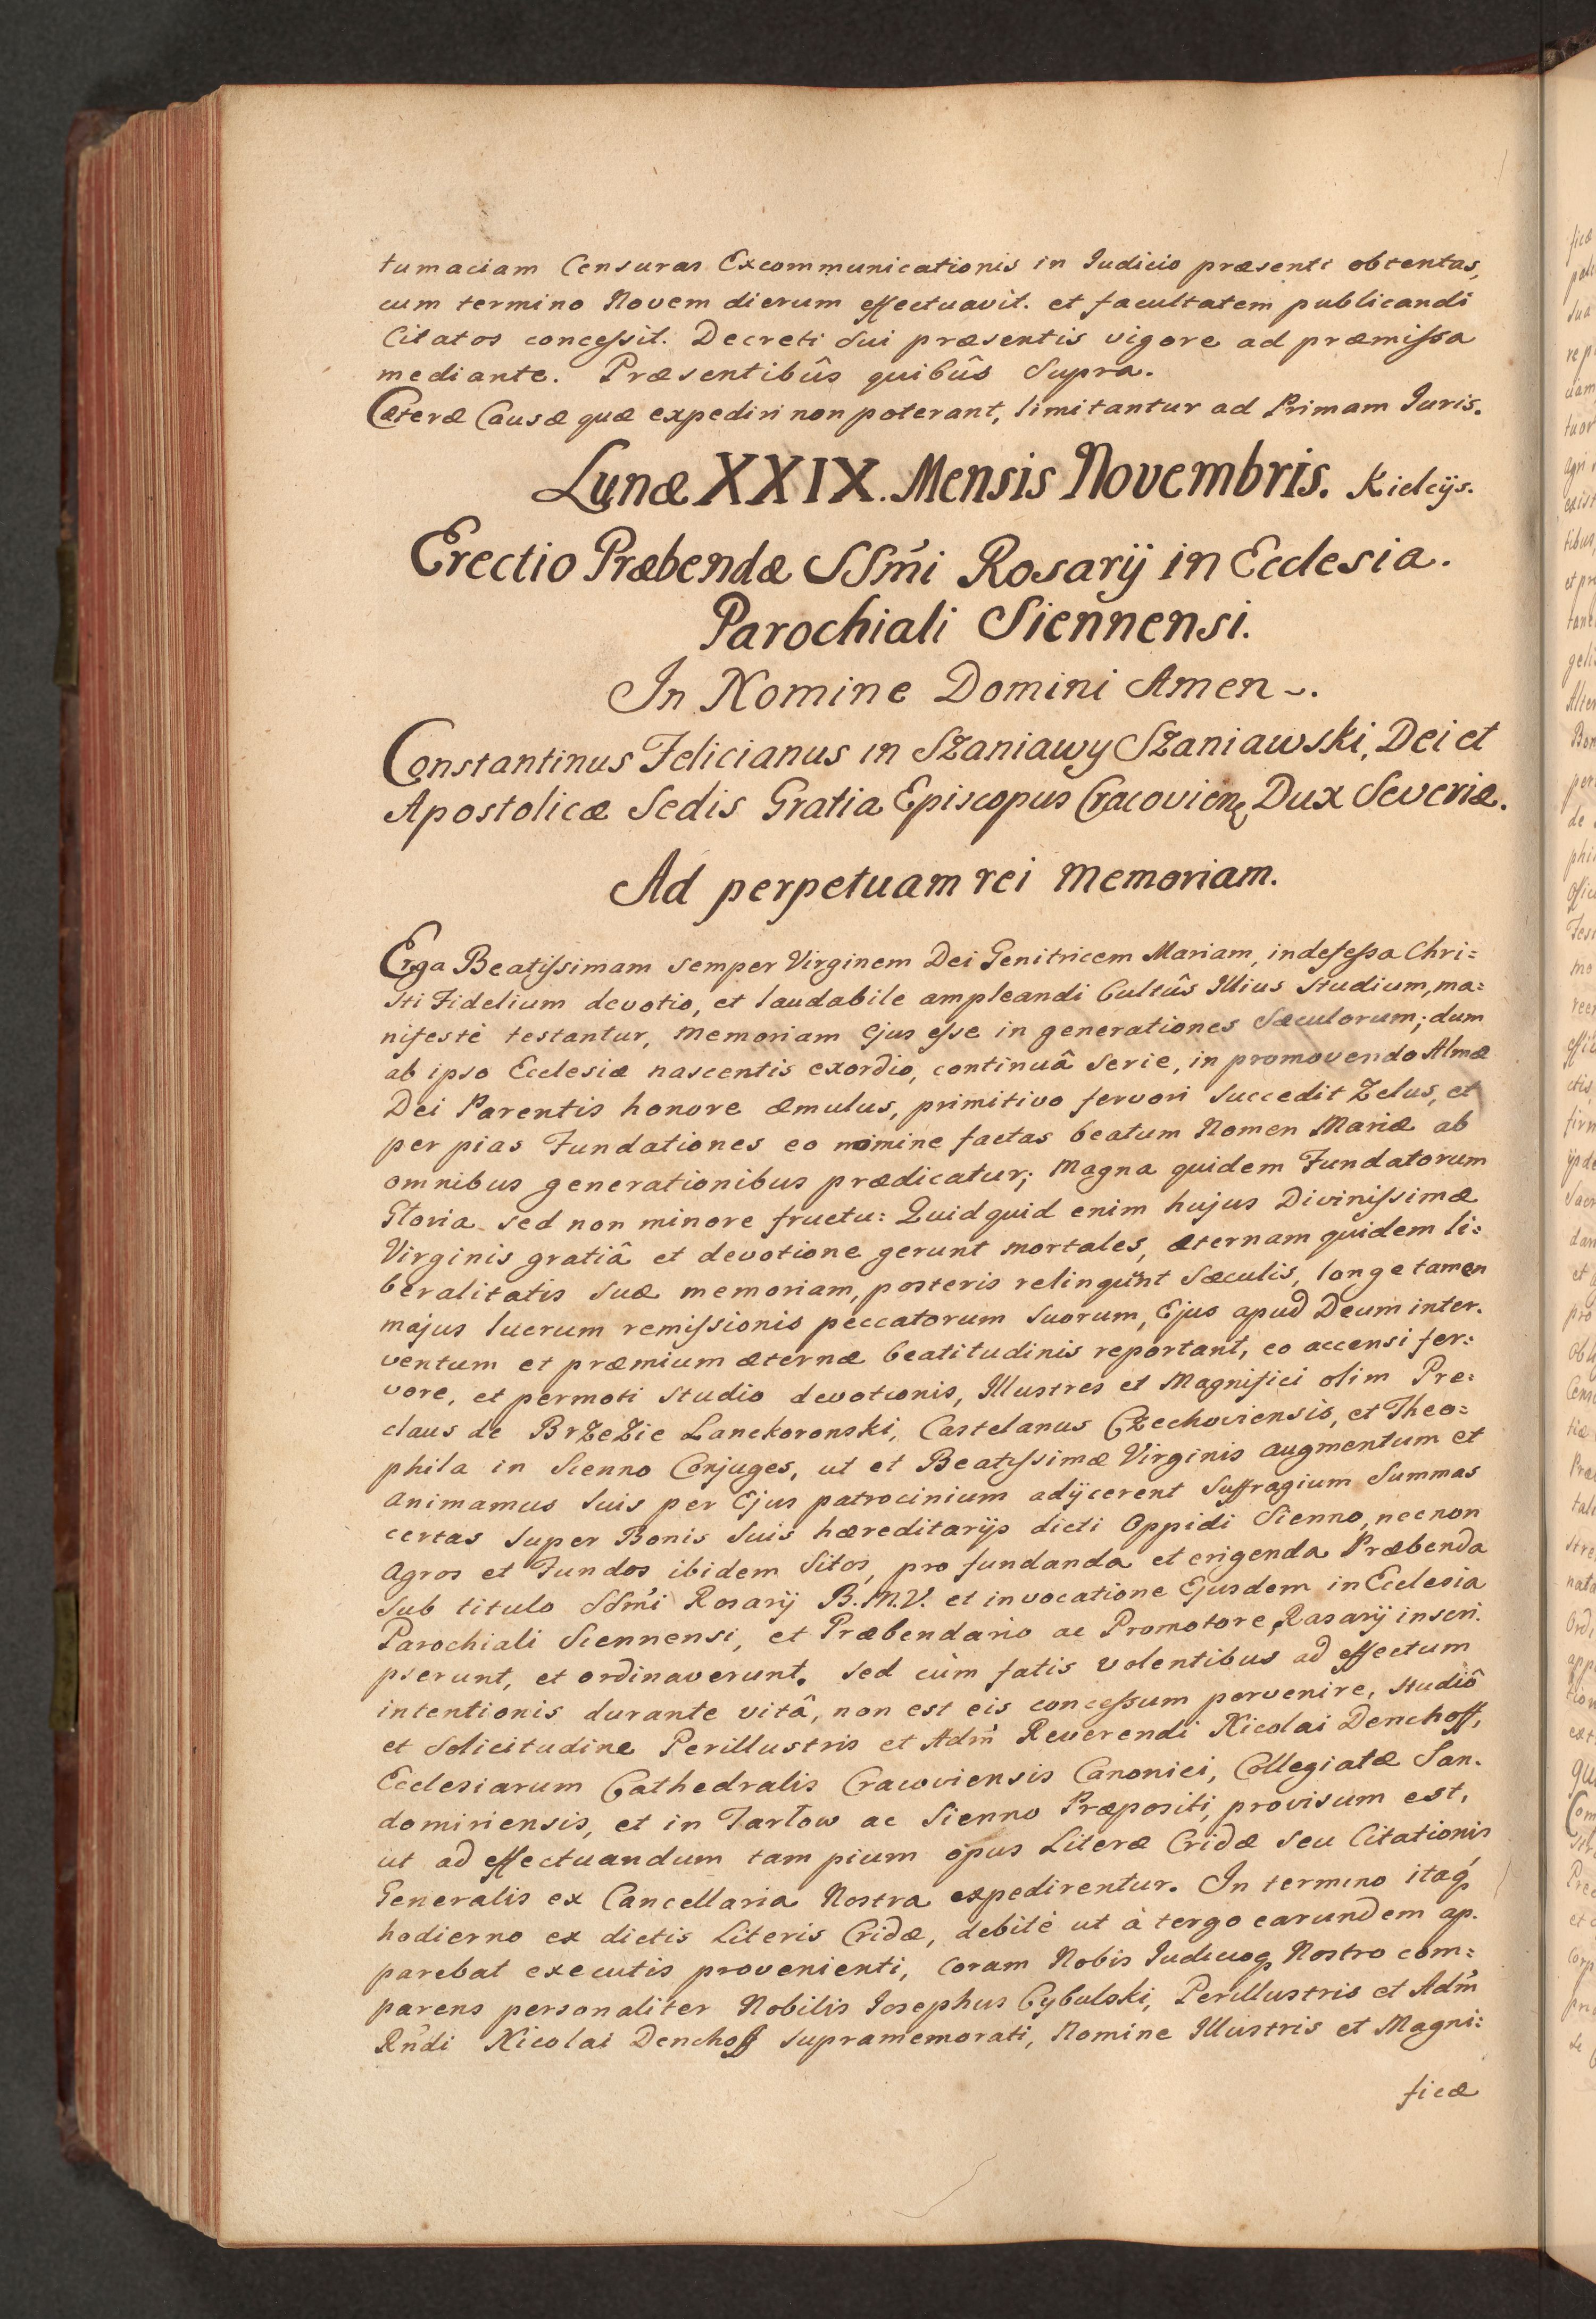 tumaciam Censuras Excommunicationis in Iudicio præsenti obtentas,
cum termino Novem dierum effectuavit. et facultatem publicandi
Citatos concessit. Decreti sui præsentis vigore ad præmissa
mediante. Præsentibûs quibûs Supra.
Cæteræ Causæ quæ expediri non poterant, limitantur ad Primam Iuris.
Lunæ XXIX. Mensis Novembris. Kielcijs.
Erectio Præbendæ SSm̃i Rosarij in Ecclesia.
Parochiali Siennensi.
In Nomine Domini Amen -.
Constantinus Felicianus in Szaniawy Szaniawski, Dei et
Apostolicæ Sedis Gratia Episcopus Cracovien̄ Dux Severiæ.
Ad perpetuam rei memoriam.
Erga Beatissimam semper Virginem Dei Genitricem Mariam, indefessa Chri=
sti Fidelium devotio, et laudabile ampleandi Cultûs Illius studium, ma=
nifestè testantur, memoriam Ejus esse in generationes Sæculorum; dum
ab ipso Ecclesiæ nascentis exordio, continuâ Serie, in promovendo Almæ
Dei Parentis honore æmulus, primitivo fervori succedit Zelus, et
per pias Fundationes eo nomine factas beatum Nomen Mariæ ab
omnibus generationibus prædicatur; magna quidem Fundatorum
Gloria sed non minore fructu: Quidquid enim hujus Divinissimæ
Virginis gratiâ et devotione gerunt mortales, æternam quidem li=
beralitatis suæ memoriam, posteris relinquunt Sæculis, longe tamen
majus lucrum remissionis peccatorum suorum, Ejus apud Deum inter=
ventum et præmium æternæ beatitudinis reportant, eo accensi fer=
vore, et permoti studio devotionis, Illustres et Magnifici olim Pre=
claus de BrZeZie Lanckoronski, Castelanus Czechoviensis, et Theo=
phila in Sienno Conjuges, ut et Beatissimæ Virginis augmentum et
animamus suis per Ejus patrocinium adijcerent Suffragium Summas
certas super Bonis Suis hæreditarijs dicti Oppidi Sienno, necnon
agros et Fundos ibidem Sitos, pro fundanda et erigenda Præbenda
sub titulo SSm̃i Rosarij B.M.V. et invocatione Ejusdem in Ecclesia
Parochiali Siennensi, et Præbendario ac Promotore Rasarij inscri=
pserunt, et ordinaverunt. Sed cùm fatis volentibus ad effectum
intentionis durante vitâ, non est eis concessum pervenire, studiô
et solicitudine Perillustris et Adm̃ Reverendi Nicolai Denchoff,
Ecclesiarum Cathedralis Cracoviensis Canonici, Collegiatæ San=
domiriensis, et in Tarłow ac Sienno Præpositi, provisum est,
ut ad effectuandum tam pium opus Literæ Cridæ seu Citationis
Generalis ex Cancellaria Nostra expedirentur. In termino itaq̃
hodierno ex dictis Literis Cridæ, debitè ut à tergo earundem ap=
parebat executis provenienti, coram Nobis Iudicioq̃ Nostro com=
parens personaliter Nobilis Iosephus Cybulski, Perillustris et Adm̃
Rñdi Nicolai Denchoff supramemorati, Nomine Illustris et Magni=
ficæ